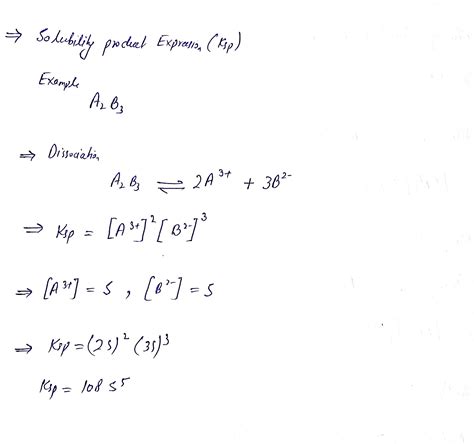 ⇒ Solubility product Expression (Ksp)
Example
A₂B₃
⇒ Dissociation
A₂B₃ ⇌ 2A³⁺ + 3B²⁻
⇒ Ksp = [A³⁺]² [B²⁻]³
⇒ [A³⁺] = S , [B²⁻] = S
⇒ Ksp = (2S)² (3S)³
Ksp = 108 S⁵